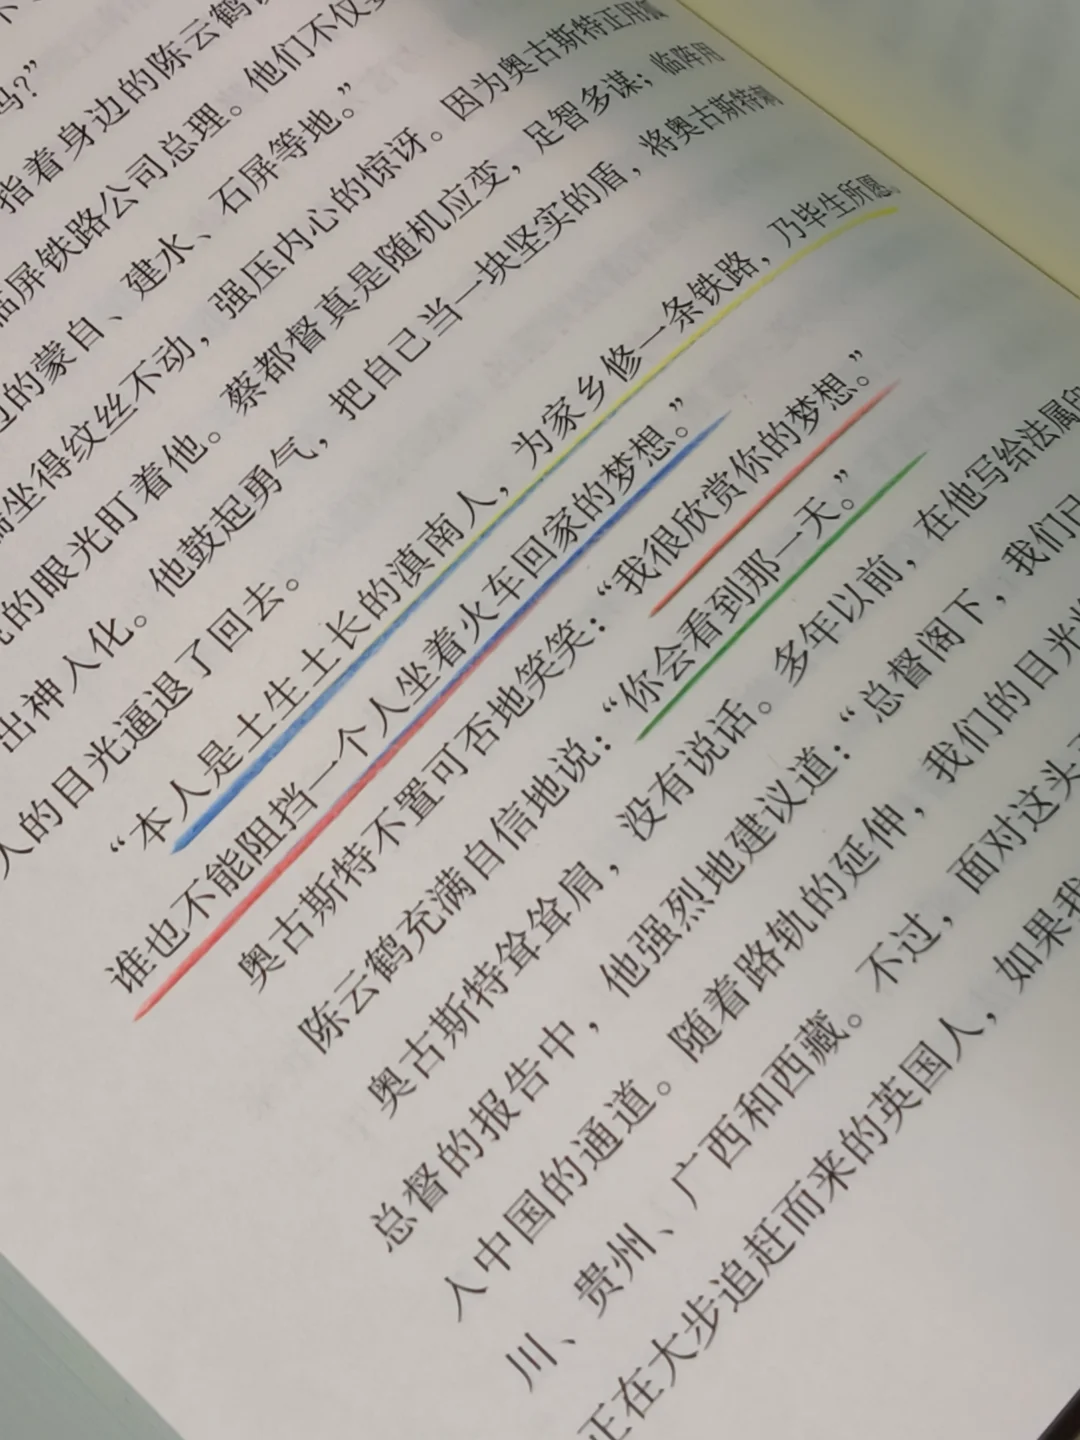 吗？”
指着身边的陈云鹤
临屏铁路公司总理。他们不仅
的蒙自、建水、石屏等地。”
端坐得纹丝不动，强压内心的惊讶。因为奥古斯特正用
的眼光盯着他。蔡都督真是随机应变，足智多谋；临阵用
出神入化。他鼓起勇气，把自己当一块坚实的盾，将奥古斯特刺
人的目光逼退了回去。
“本人是土生土长的滇南人，为家乡修一条铁路，乃毕生所愿。
谁也不能阻挡一个人坐着火车回家的梦想。”
奥古斯特不置可否地笑笑：“我很欣赏你的梦想。”
陈云鹤充满自信地说：“你会看到那一天。”
奥古斯特耸耸肩，没有说话。多年以前，在他写给法属印
总督的报告中，他强烈地建议道：“总督阁下，我们已
人中国的通道。随着路轨的延伸，我们的目光
川、贵州、广西和西藏。不过，面对这头
正在大步追赶而来的英国人，如果我